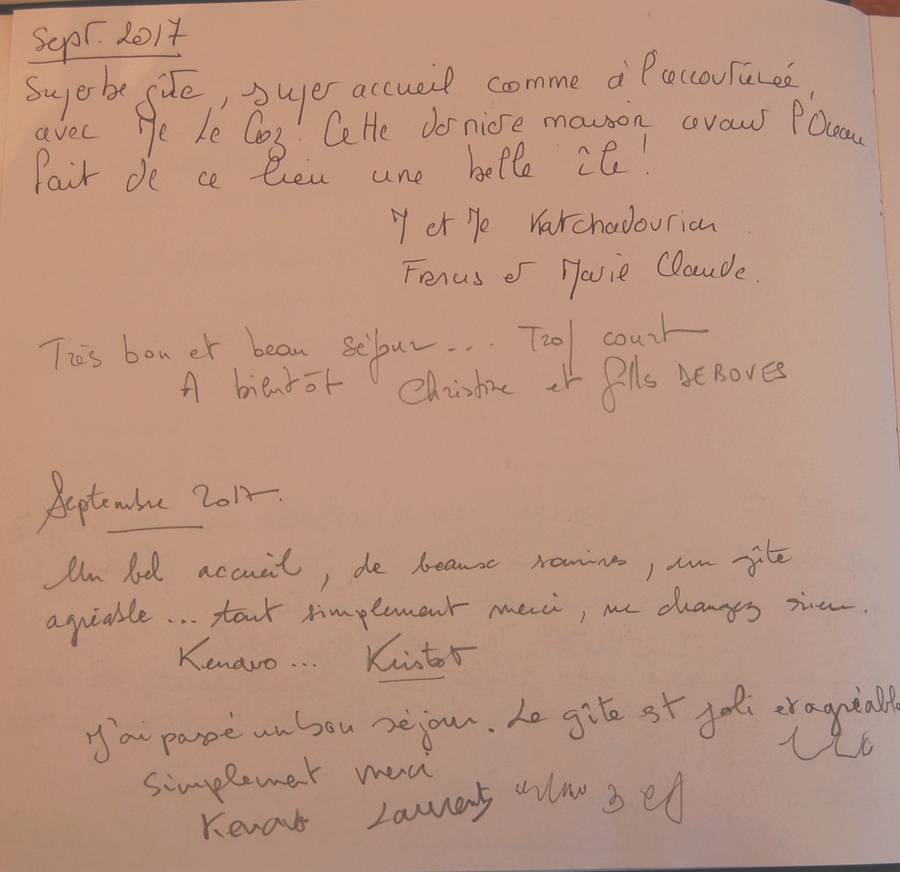 Sept. 2017
Superbe gîte, super accueil comme à l'accoutumée,
avec Me Le Coz. Cette dernière maison avant l'Océan
fait de ce lieu une belle île !
M et Me Katchadourian
et Marie Claude.
Très bon et beau séjour... Trop court
A bientôt Christine et fills DEBOVES
Septembre 2017.
Un bel accueil, de beaux sourires, un gîte
agréable... tout simplement merci, ne changez rien.
Kenavo... Kristof
J'ai passé un bon séjour. Le gîte est joli et agréable
Simplement merci
Kenavo Laurent